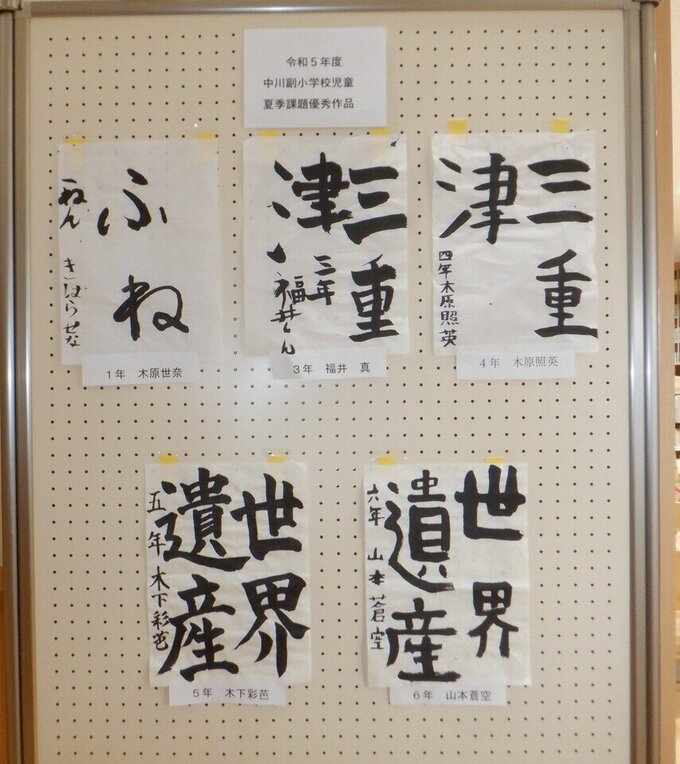 令和５年度
中川副小学校児童
夏季課題優秀作品
ふね
一ねん きはらせな
１年 木原世奈
三重
津
三年 福井しん
３年 福井 真
三重
津
四年木原照英
４年 木原照英
世界
遺産
五年 木下彩芭
５年 木下彩芭
世界
遺産
六年 山本蒼空
６年 山本蒼空